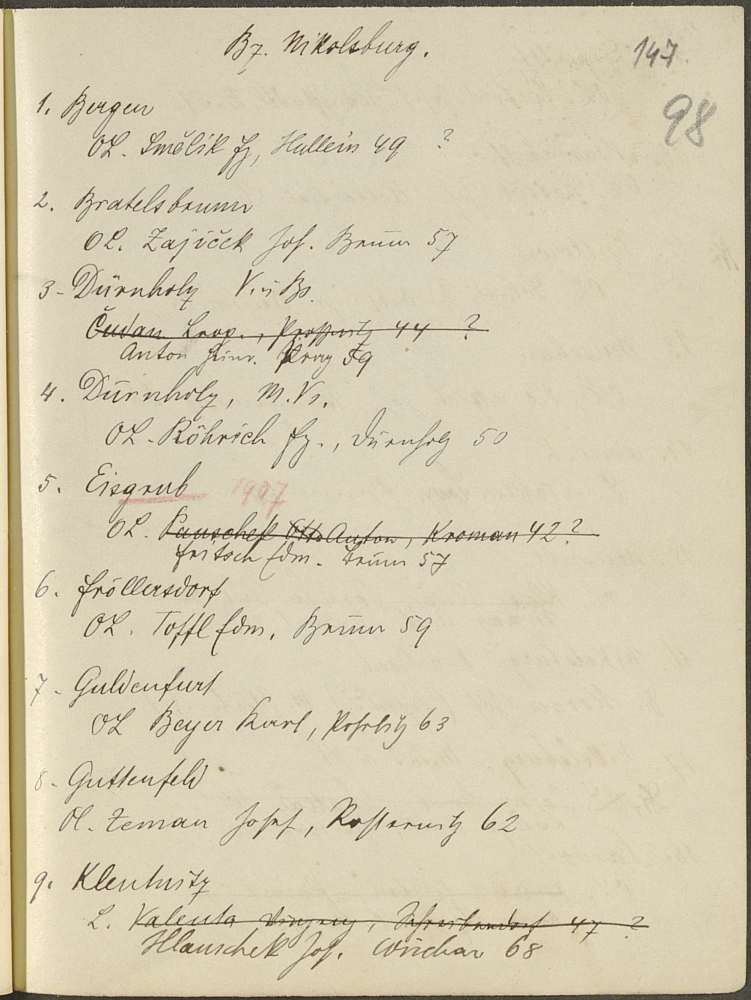 Bz. Nikolsburg.
147.
98
1. Bergen
OL. Smělik Fz, Hullein 49 ?
2. Bratelsbrunn
OL. Zajiček Jos. Brünn 57
3. Dürnholz V. u Bs.
Čudan Leop., Prossnitz 44 ?
Anton Heinr. Prag 59
4. Dürnholz, M. Vs.
OL. Röhrich Fz., Dürnholz 50
5. Eisgrub 1907
OL. Otto Anton, Kroman 42 ?
Fritsch Edm. Brünn 57
6. Fröllersdorf
OL. Toffl Edm, Brünn 59
7. Guldenfurt
OL Beyer Karl, Pohrlitz 63
8. Guttenfeld
Ol. Zeman Josef, 62
9. Klentnitz
L. Valenta 47 ?
Hlauschek Jos. 68